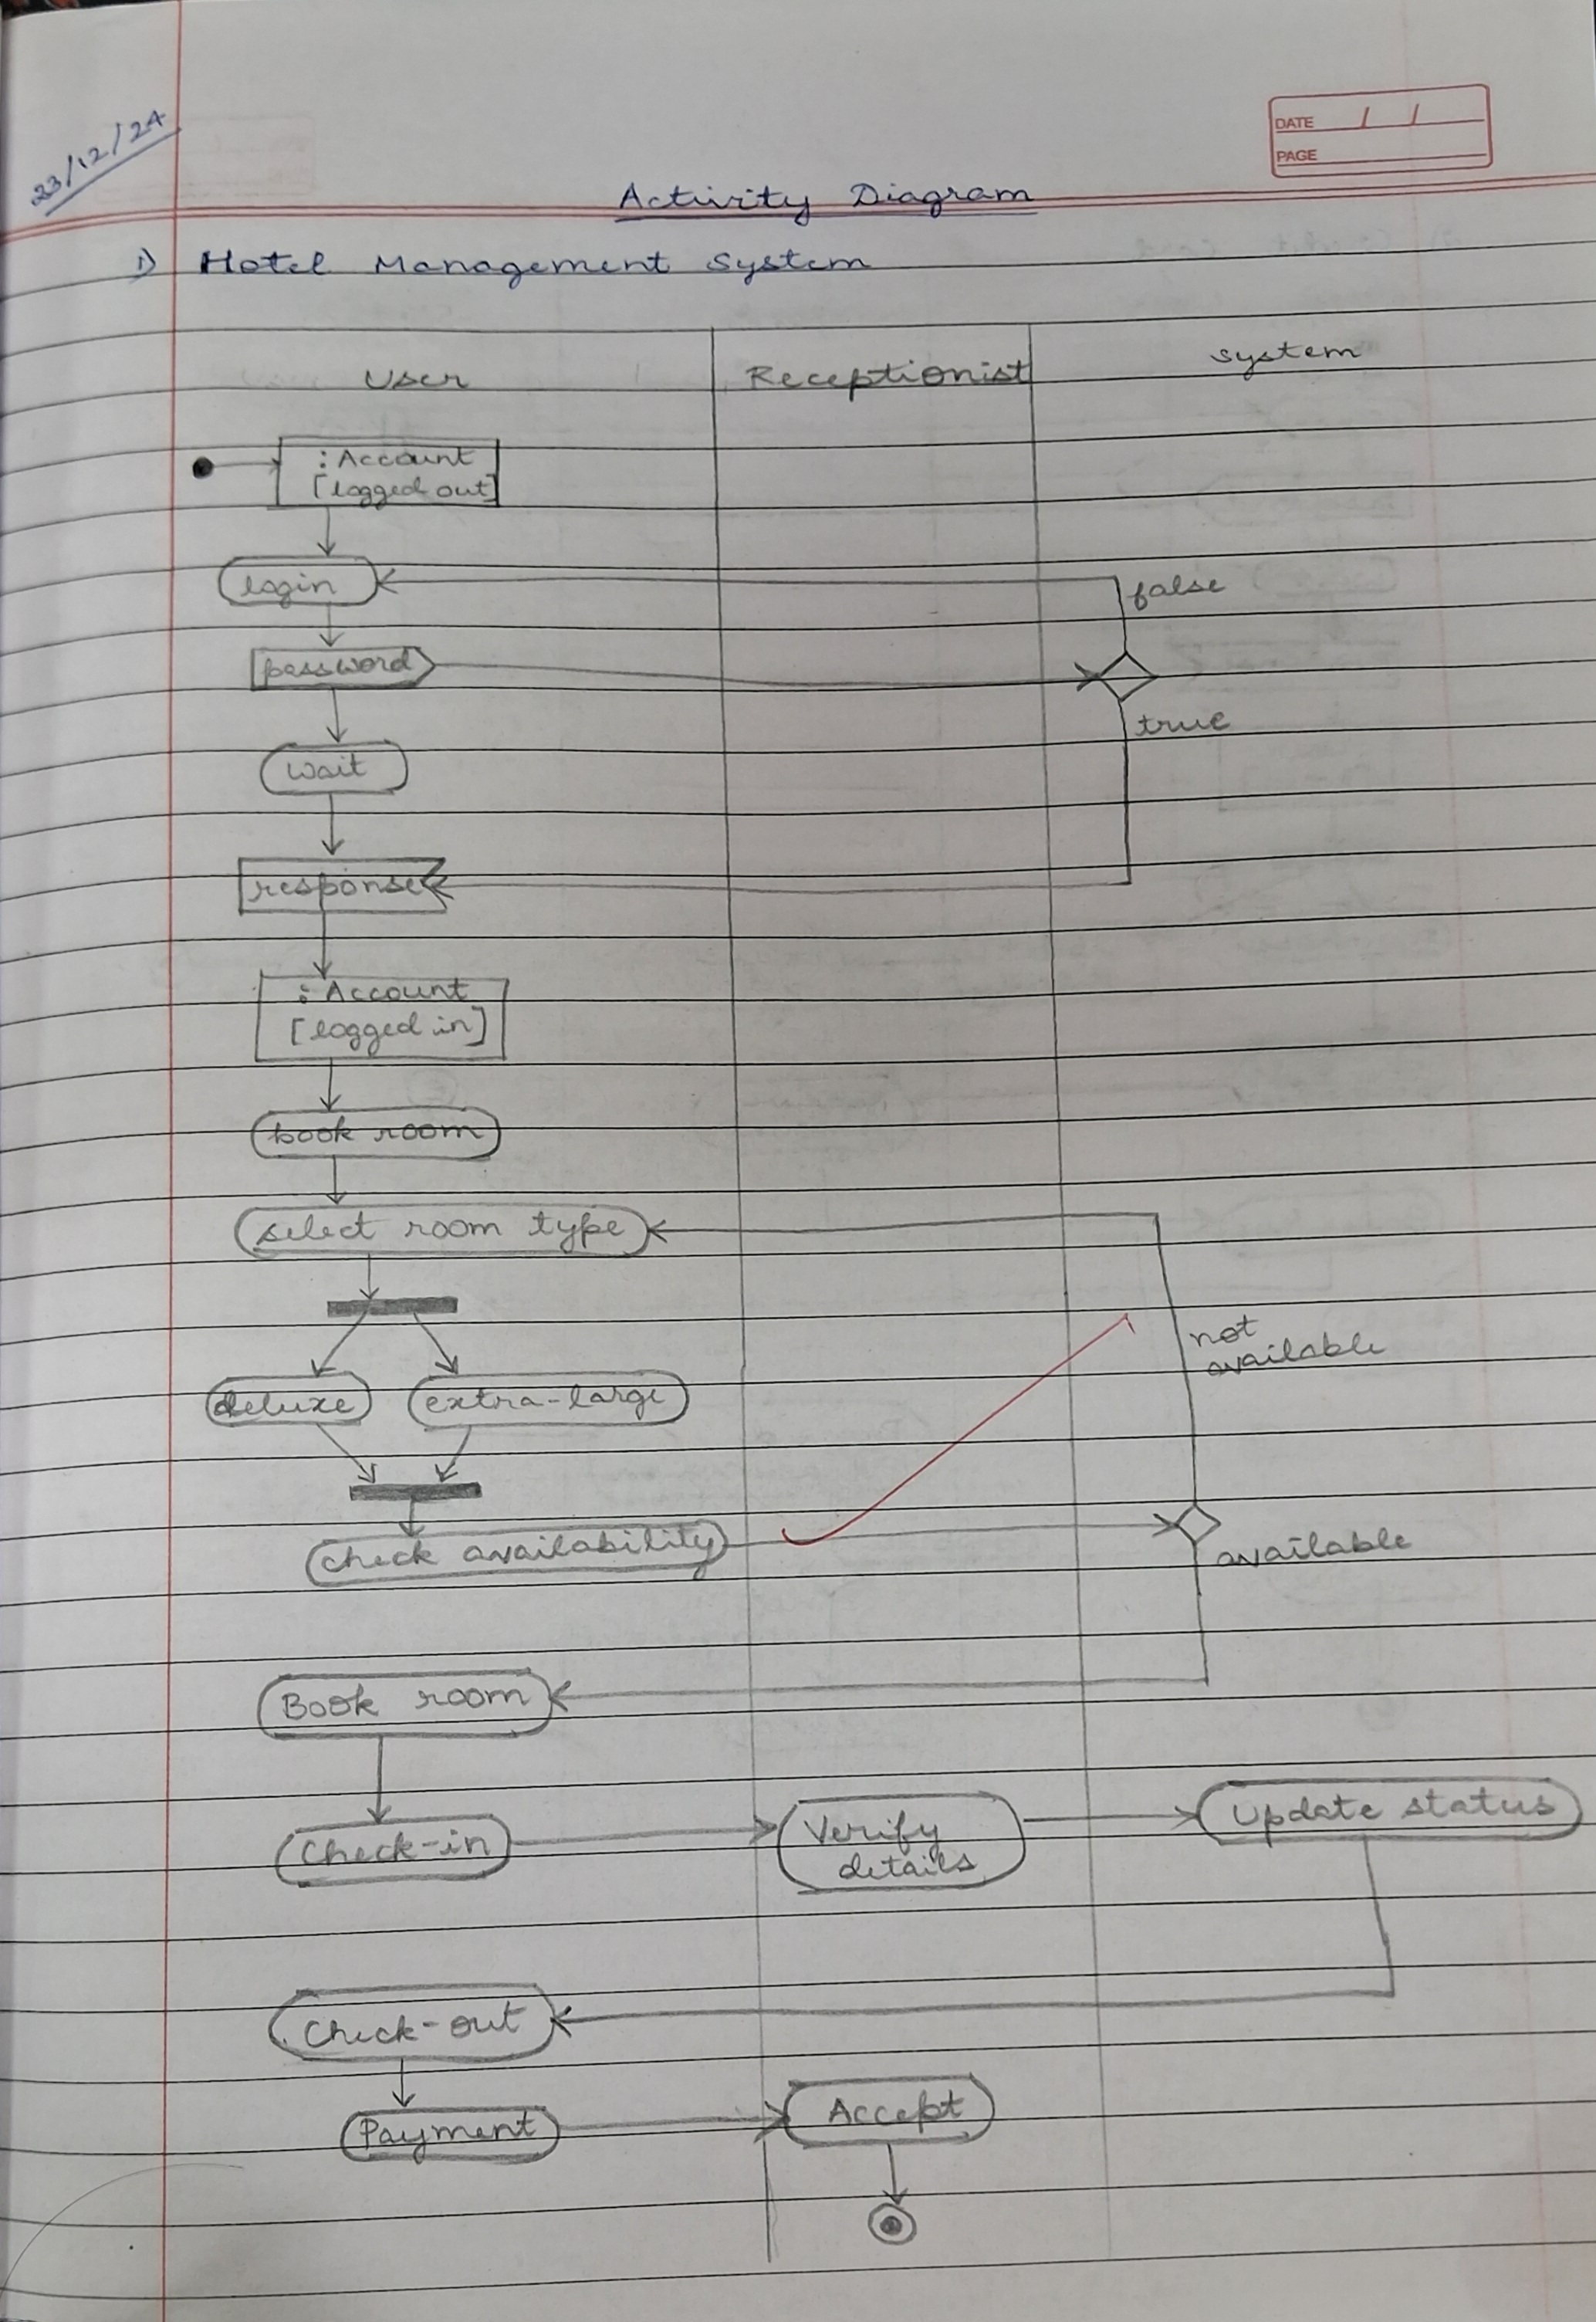 23/12/24
DATE / /
PAGE
Activity Diagram
1) Hotel Management System
User Receptionist System
:Account
[logged out]
login
false
password
true
wait
response
:Account
[logged in]
book room
select room type
not
available
deluxe extra-large
check availability
available
Book room
Check-in
Verify
details
Update status
Check-out
Payment
Accept